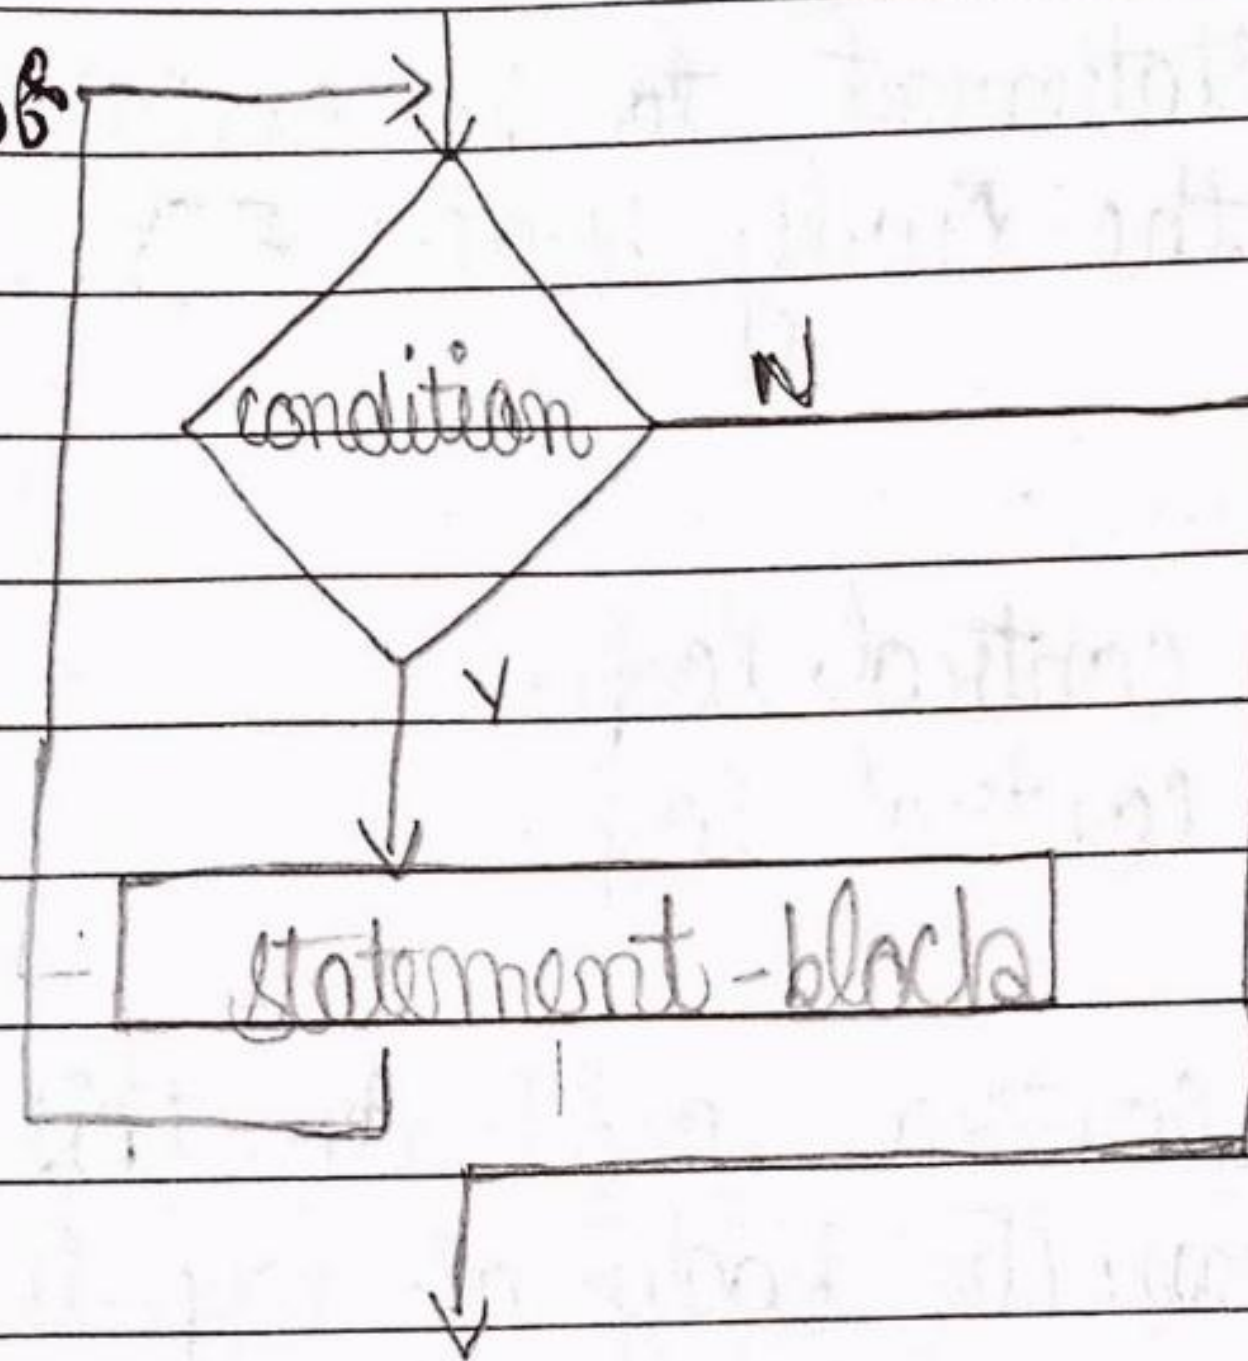 N
condition
Y
statement-block